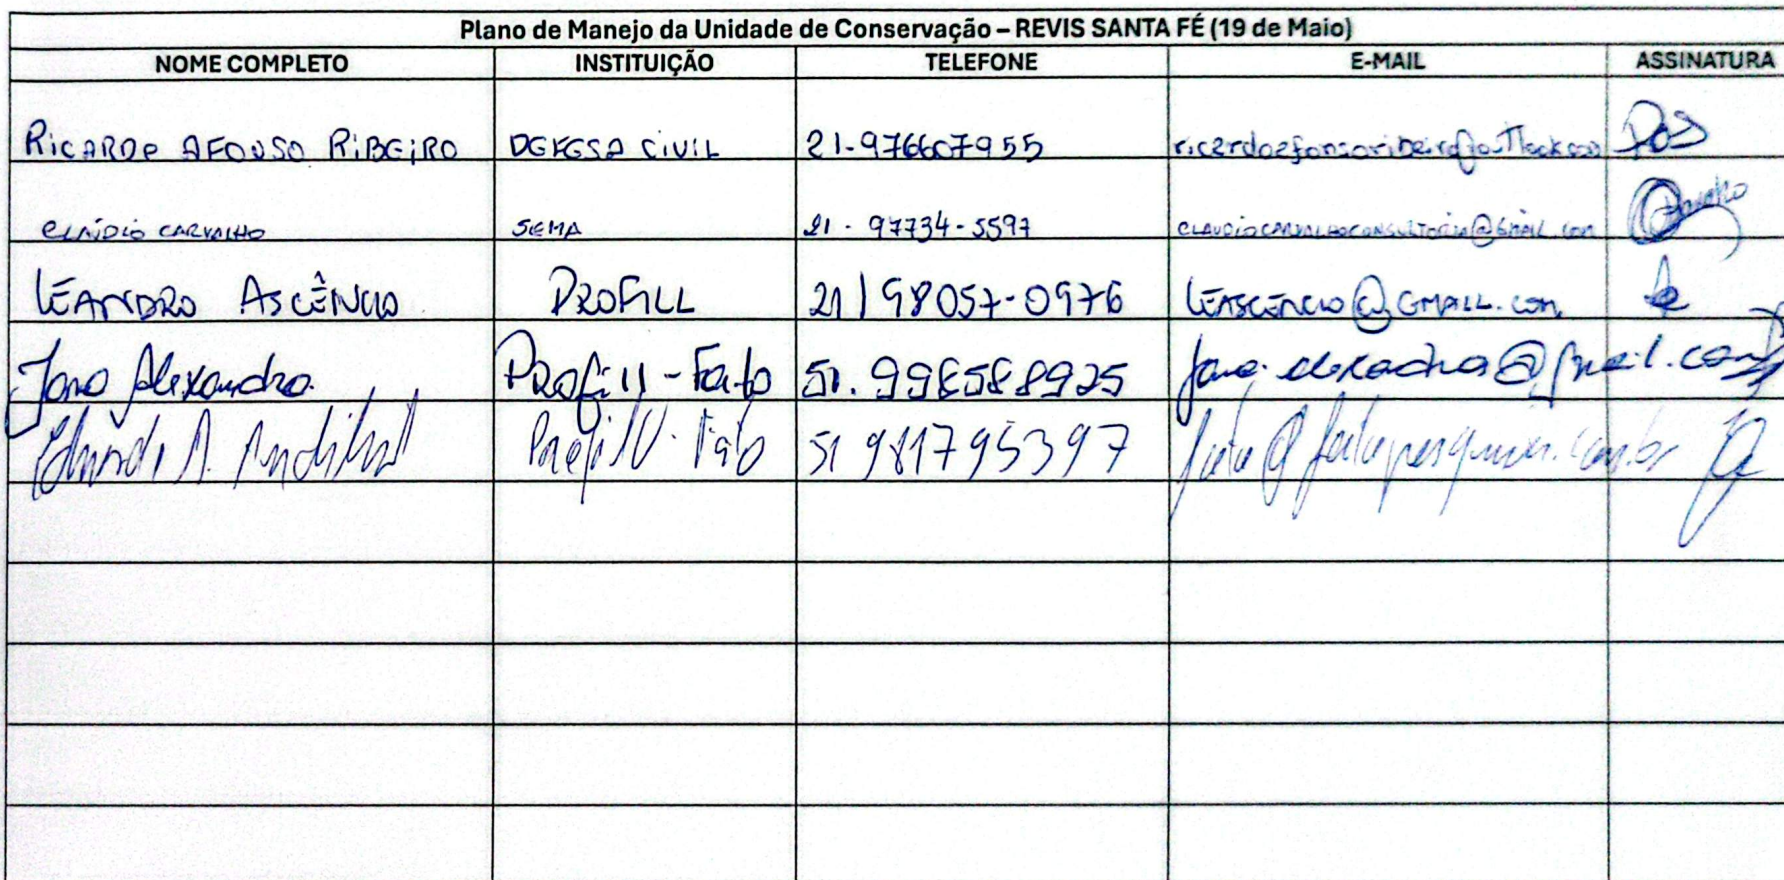 Plano de Manejo da Unidade de Conservação – REVIS SANTA FÉ (19 de Maio)
NOME COMPLETO INSTITUIÇÃO TELEFONE E-MAIL ASSINATURA
RICARDO AFONSO RIBEIRO DEFESA CIVIL 21-976607955 ricardoafonsoribeiro@outlook.com
CLAÚDIO CARVALHO SEMA 21 - 97734-5597 CLAUDIOCARVALHOCONSULTORIA@GMAIL.COM
LEANDRO ASCÊNCIO PROFILL 21 | 98057-0976 LEASCENCIO@GMAIL.COM
Jana Alexandra Profill - Fato 51.998588925 jana.alexandra@gmail.com
Profill - Fato 51 981795397